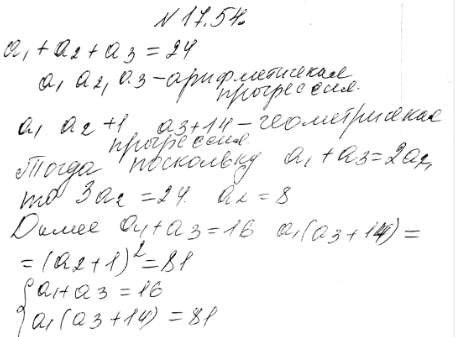 № 17.54.
a₁ + a₂ + a₃ = 24
a₁ a₂, a₃ - арифметическая
прогрессия.
a₁ a₂ + 1 a₃ + 14 - геометрическая
прогрессия.
Тогда поскольку a₁ + a₃ = 2a₂,
то 3a₂ = 24. a₂ = 8
Далее a₁ + a₃ = 16 a₁(a₃ + 14) =
= (a₂ + 1)² = 81
{ a₁ + a₃ = 16
{ a₁(a₃ + 14) = 81